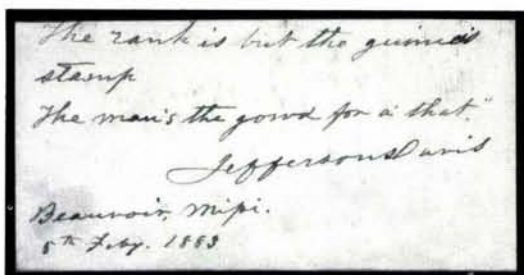 The rank is but the guinea's
stamp
The man's the gowd for a' that."
Jefferson Davis
Beauvoir, Mipi.
5th Feby. 1883